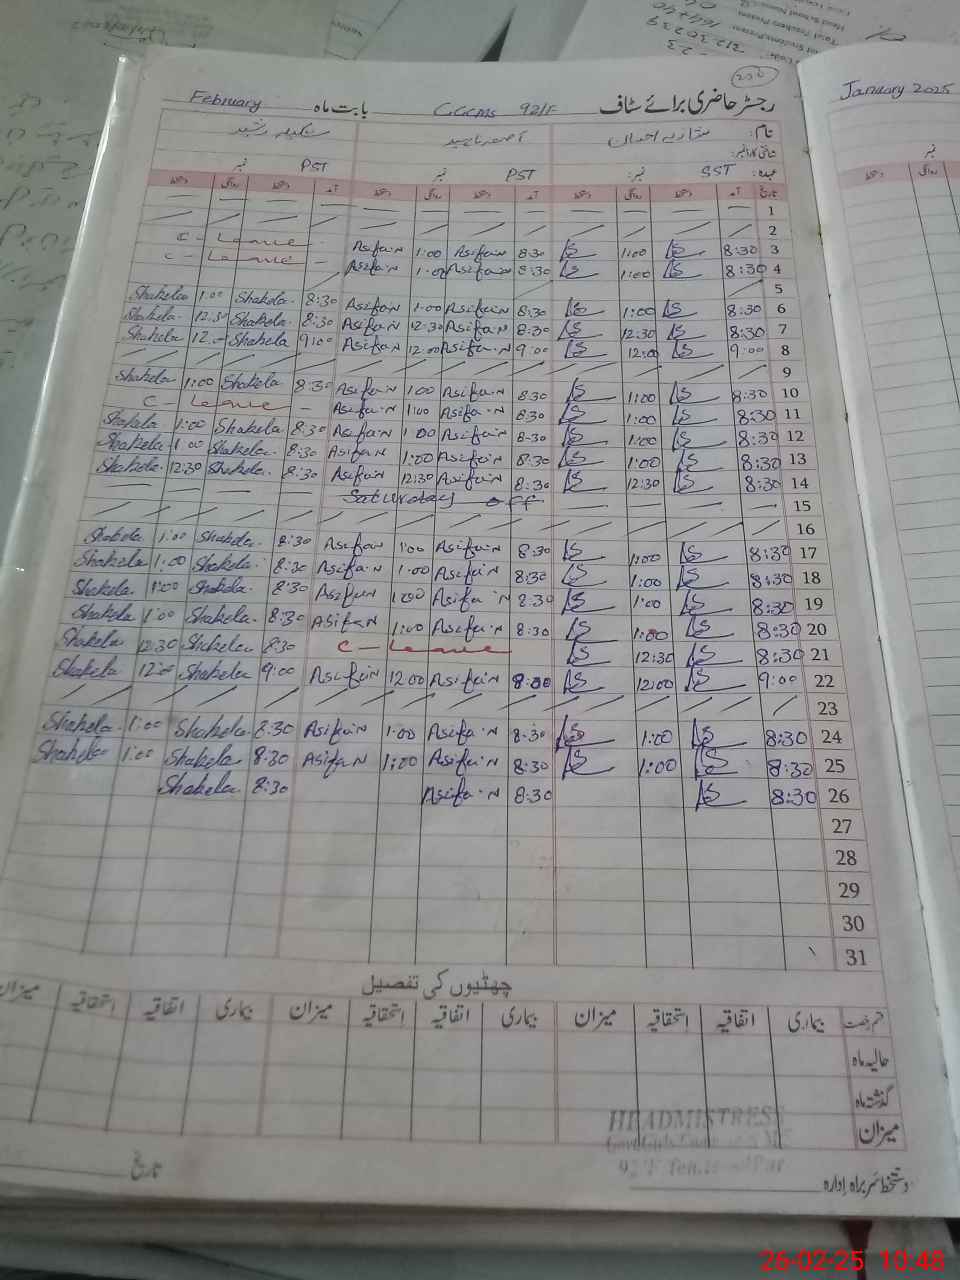 January 2025
رجسٹر حاضری برائے سٹاف GGCMS 92/F بابت ماہ February
نام: شازیہ احسان آصفہ ناہید شکیلہ رشید
عہدہ: SST نمبر: PST نمبر PST نمبر
تاریخ آمد دستخط روانگی دستخط آمد دستخط روانگی دستخط آمد دستخط روانگی دستخط
1
2
3 8:30 1:00 8:30 Asifa.N 1:00 Asifa.N C-Leave
4 8:30 1:00 8:30 Asifa.N 1:00 Asifa.N C-Leave
5
6 8:30 1:00 8:30 Asifa.N 1:00 Asifa.N 8:30 Shakela 1:00 Shakela
7 8:30 12:30 8:30 Asifa.N 12:30 Asifa.N 8:30 Shakela 12:30 Shakela
8 9:00 12:00 9:00 Asifa.N 12:00 Asifa.N 9:00 Shakela 12:00 Shakela
9
10 8:30 1:00 8:30 Asifa.N 1:00 Asifa.N 8:30 Shakela 1:00 Shakela
11 8:30 1:00 8:30 Asifa.N 1:00 Asifa.N C-Leave
12 8:30 1:00 8:30 Asifa.N 1:00 Asifa.N 8:30 Shakela 1:00 Shakela
13 8:30 1:00 8:30 Asifa.N 1:00 Asifa.N 8:30 Shakela 1:00 Shakela
14 8:30 12:30 8:30 Asifa.N 12:30 Asifa.N 8:30 Shakela 12:30 Shakela
15 Saturday off
16
17 8:30 1:00 8:30 Asifa.N 1:00 Asifa.N 8:30 Shakela 1:00 Shakela
18 8:30 1:00 8:30 Asifa.N 1:00 Asifa.N 8:30 Shakela 1:00 Shakela
19 8:30 1:00 8:30 Asifa.N 1:00 Asifa.N 8:30 Shakela 1:00 Shakela
20 8:30 1:00 8:30 Asifa.N 1:00 Asifa.N 8:30 Shakela 1:00 Shakela
21 8:30 12:30 C-Leave 8:30 Shakela 12:30 Shakela
22 9:00 12:00 8:30 Asifa.N 12:00 Asifa.N 9:00 Shakela 12:00 Shakela
23
24 8:30 1:00 8:30 Asifa.N 1:00 Asifa.N 8:30 Shakela 1:00 Shakela
25 8:30 1:00 8:30 Asifa.N 1:00 Asifa.N 8:30 Shakela 1:00 Shakela
26 8:30 8:30 Asifa.N 8:30 Shakela
27
28
29
30
31
چھٹیوں کی تفصیل
قسم رخصت بیماری اتفاقیہ استحقاقیہ میزان بیماری اتفاقیہ استحقاقیہ میزان بیماری اتفاقیہ استحقاقیہ میزان
حالیہ ماہ
گذشتہ ماہ
میزان
HEADMISTRESS
دستخط سربراہ ادارہ تاریخ
26-02-25 10:48